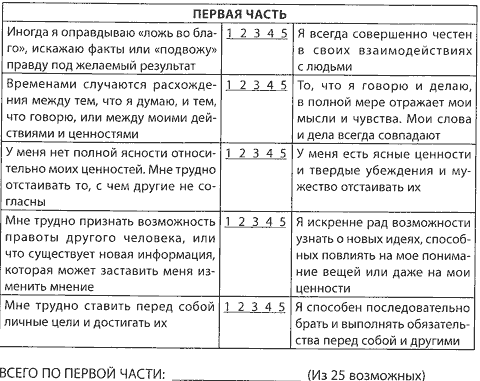 ПЕРВАЯ ЧАСТЬ
Иногда я оправдываю «ложь во бла-
го», искажаю факты или «подвожу»
правду под желаемый результат
1 2 3 4 5
Я всегда совершенно честен
в своих взаимодействиях
с людьми
Временами случаются расхожде-
ния между тем, что я думаю, и тем,
что говорю, или между моими дей-
ствиями и ценностями
1 2 3 4 5
То, что я говорю и делаю,
в полной мере отражает мои
мысли и чувства. Мои слова
и дела всегда совпадают
У меня нет полной ясности относи-
тельно моих ценностей. Мне трудно
отстаивать то, с чем другие не со-
гласны
1 2 3 4 5
У меня есть ясные ценности
и твердые убеждения и му-
жество отстаивать их
Мне трудно признать возможность
правоты другого человека, или
что существует новая информация,
которая может заставить меня из-
менить мнение
1 2 3 4 5
Я искренне рад возможности
узнать о новых идеях, способ-
ных повлиять на мое понима-
ние вещей или даже на мои
ценности
Мне трудно ставить перед собой
личные цели и достигать их
1 2 3 4 5
Я способен последовательно
брать и выполнять обязатель-
ства перед собой и другими
ВСЕГО ПО ПЕРВОЙ ЧАСТИ: (Из 25 возможных)